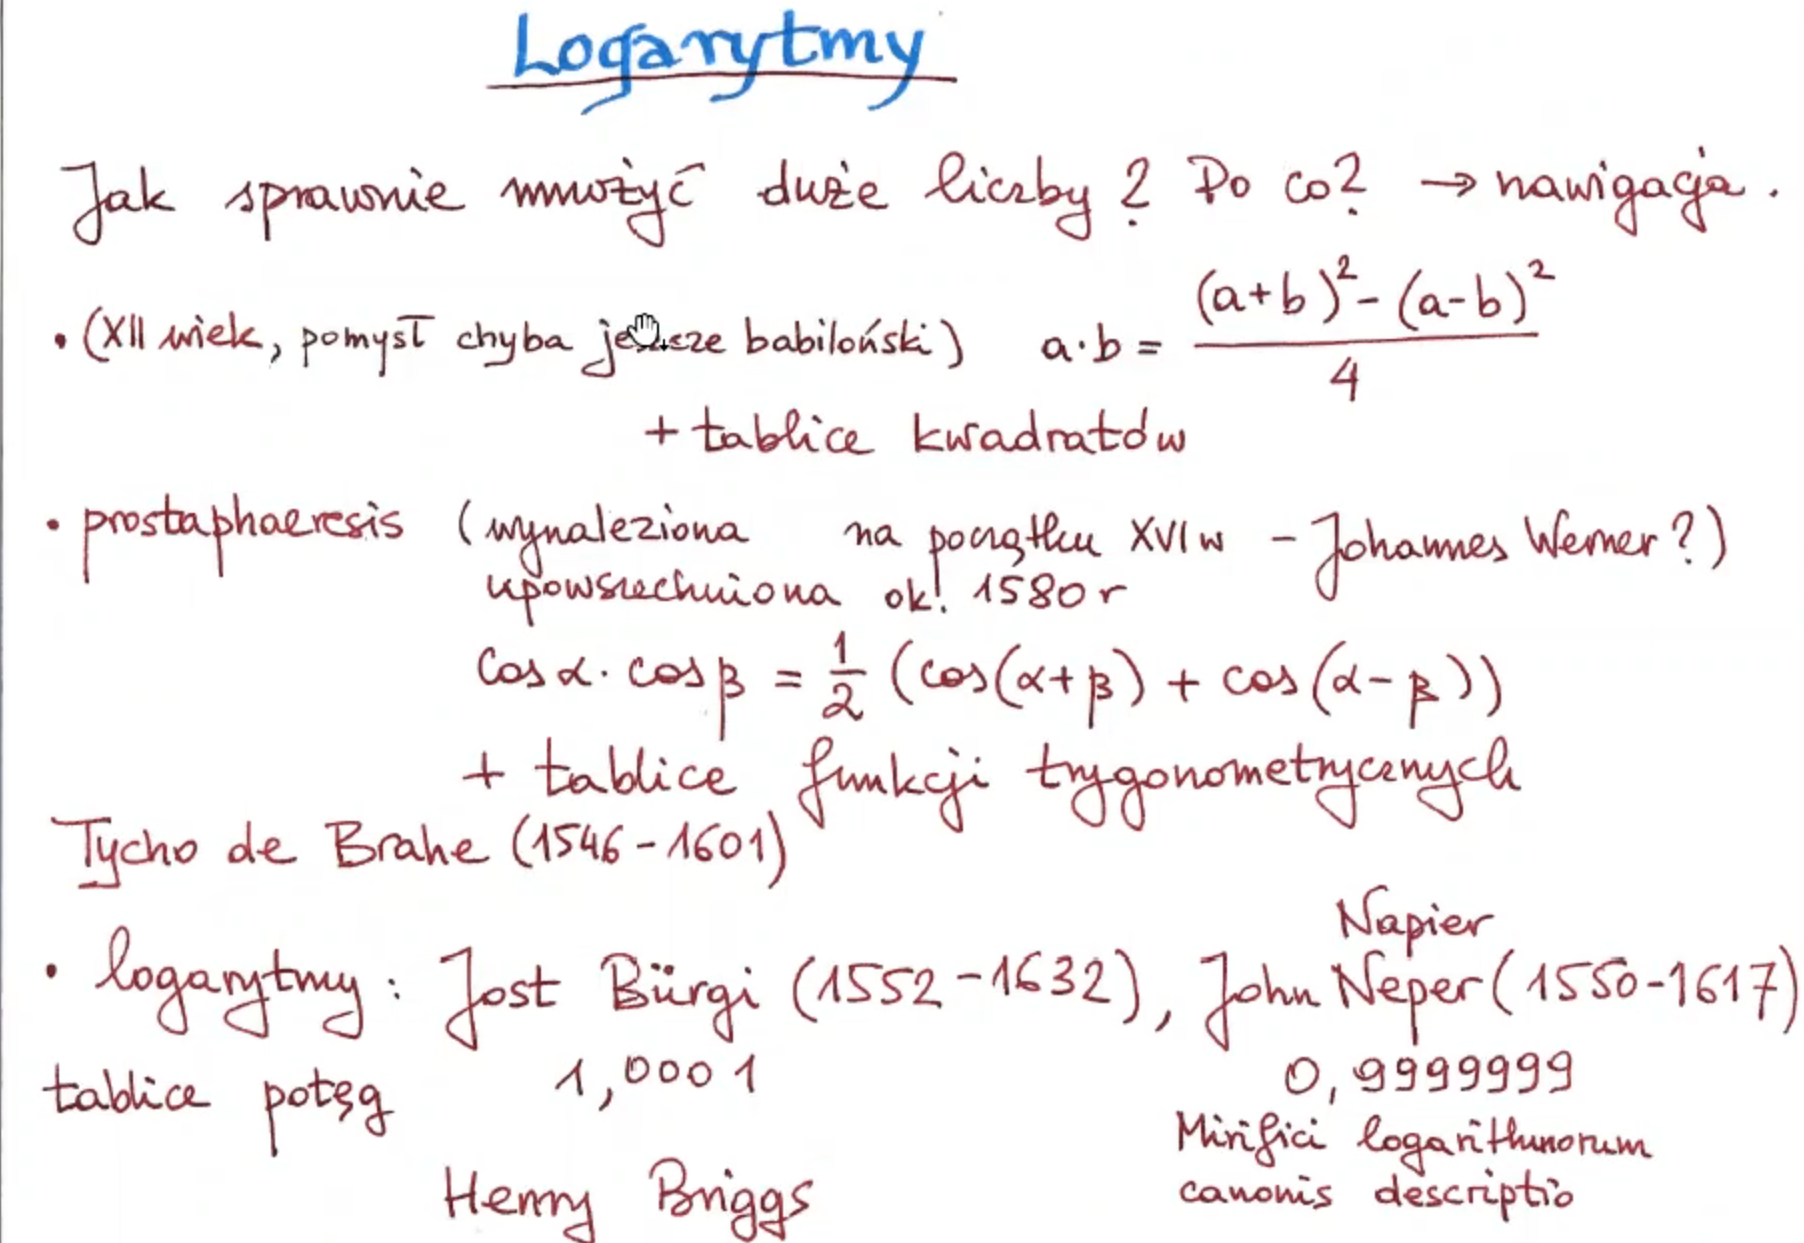 Logarytmy
Jak sprawnie mnożyć duże liczby? Po co? → nawigacja.
• (XII wiek, pomysł chyba jeszcze babiloński) a·b = \frac{(a+b)^2 - (a-b)^2}{4}
+ tablice kwadratów
• prostaphaeresis (wynaleziona na początku XVI w - Johannes Werner?)
upowszechniona ok. 1580 r
cos α · cos β = \frac{1}{2} (cos(α+β) + cos(α-β))
+ tablice funkcji trygonometrycznych
Tycho de Brahe (1546-1601)
Napier
• logarytmy: Jost Bürgi (1552-1632), John Neper (1550-1617)
tablice potęg 1,0001 0,9999999
Mirifici logarithmorum
canonis descriptio
Henry Briggs